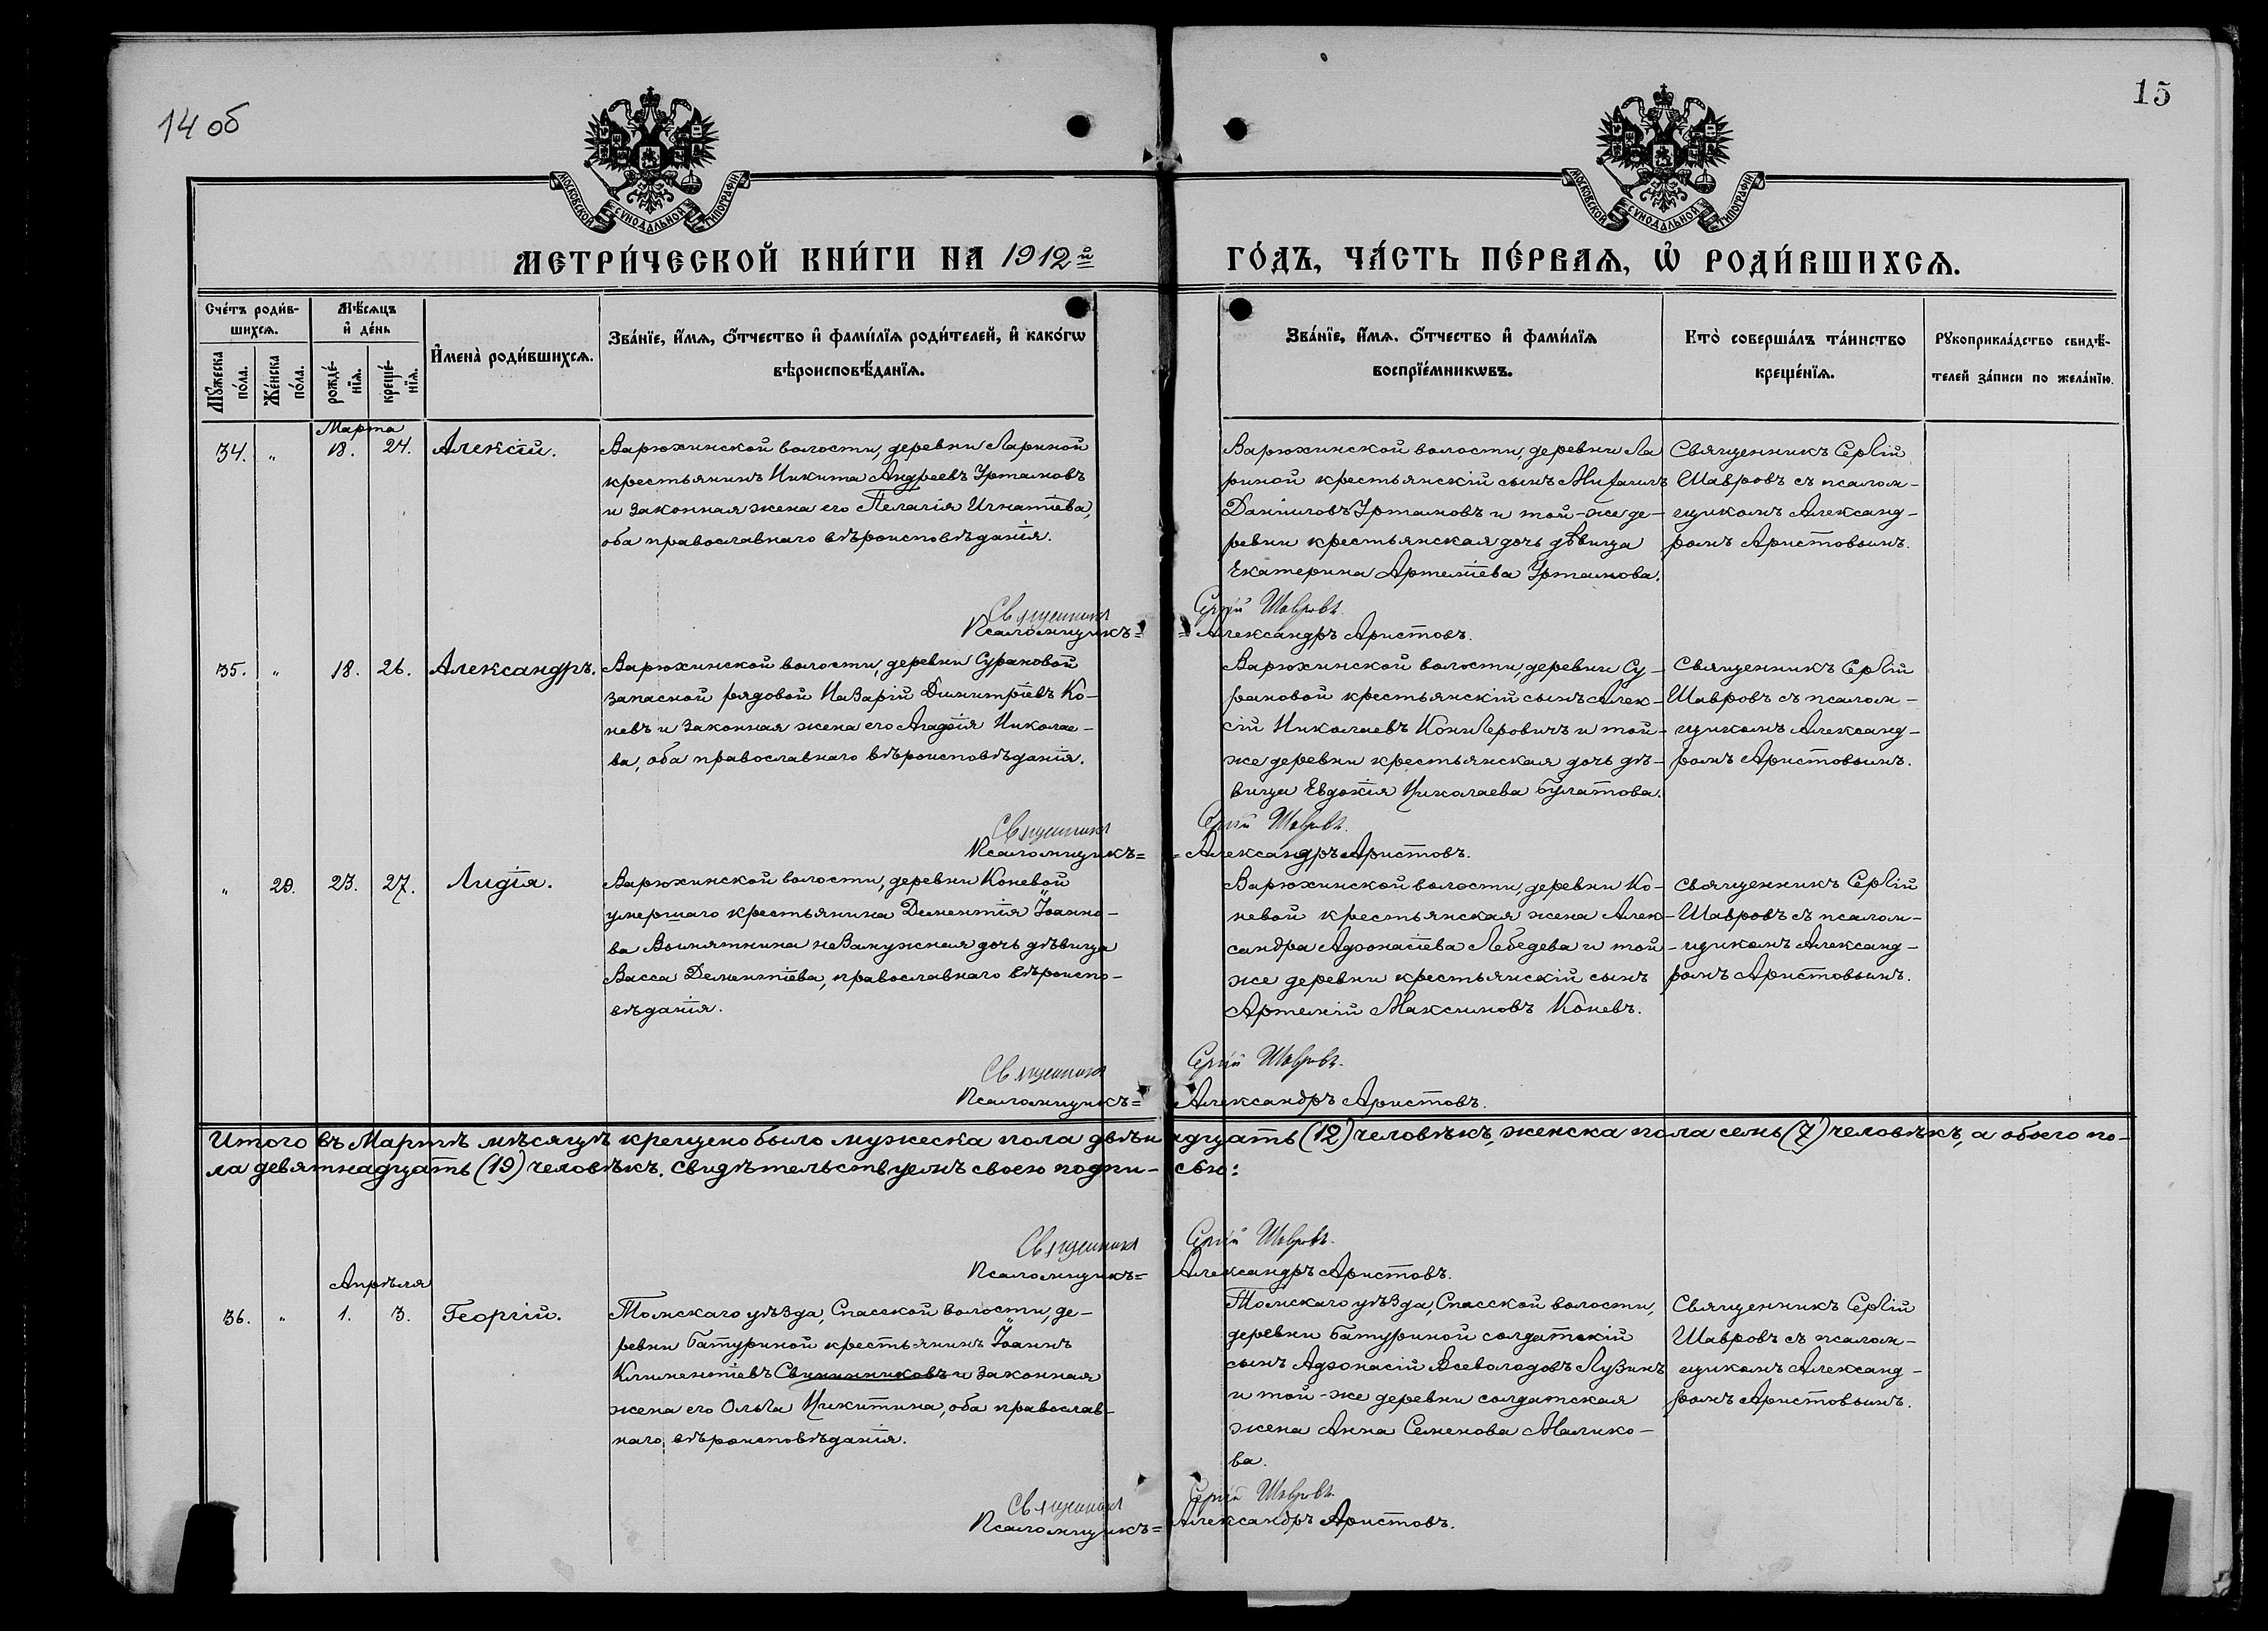 14 об
15
МОСКОВСКОЙ СѴНОДАЛЬНОЙ ТИПОГРАФІИ
МОСКОВСКОЙ СѴНОДАЛЬНОЙ ТИПОГРАФІИ
МЕТРИ́ЧЕСКОЙ КНИ́ГИ НА 1912й
ГО́ДЪ, ЧА́СТЬ ПЕ́РВАѦ, Ѡ҆ РОДИ́ВШИХСѦ.
Сче́тъ роди́в-
шихсѧ.
Мѣ́сѧцъ
и҆ де́нь
И҆мена̀ роди́вшихсѧ.
Зва́нїе, и҆́мѧ, ѻ҆́тчество и҆ фами́лїѧ роди́телей, и҆ како́гѡ
вѣроисповѣ́данїѧ.
Зва́нїе, и҆́мѧ, ѻ҆́тчество и҆ фами́лїѧ
воспрїе́мникѡвъ.
Кто̀ соверша́лъ та́инство
креще́нїѧ.
Рꙋкоприкла́дство свидѣ́-
телей за́писи по жела́нїю.
Мꙋ́жеска
по́ла.
Же́нска
по́ла.
рожде́-
нїѧ.
креще́-
нїѧ.
Марта
34. " 18. 24. Алексій.
Варюхинской волости, деревни Лариной
крестьянинъ Никита Андреевъ Уртамовъ
и законная жена его Пелагія Игнатіева,
оба православнаго вѣроисповѣданія.
Варюхинской волости, деревни Ла
риной крестьянскій сынъ Михаилъ
Даніиловъ Уртамовъ и той-же де-
ревни крестьянская дочь дѣвица
Екатерина Артеміева Уртамова.
Священникъ Сергій
Шавровъ съ псалом-
щикомъ Александ-
ромъ Аристовымъ.
Священникъ Сергій Шавровъ.
Псаломщикъ= =Александръ Аристовъ.
35. " 18. 26. Александръ.
Варюхинской волости, деревни Сурановой
запасной рядовой Назарій Димитріевъ Ко-
невъ и законная жена его Агафія Николае-
ва, оба православнаго вѣроисповѣданія.
Варюхинской волости, деревни Су-
рановой крестьянскій сынъ Алек-
сій Николаевъ и той-
же деревни крестьянская дочь дѣ-
вица Евдокія Николаева Булатова.
Священникъ Сергій
Шавровъ съ псалом-
щикомъ Александ-
ромъ Аристовымъ.
Священникъ Сергій Шавровъ.
Псаломщикъ= =Александръ Аристовъ.
" 29. 23. 27. Лидія.
Варюхинской волости, деревни Коневой
умершаго крестьянина Дементія Іоанно-
ва Вымятнина незамужняя дочь дѣвица
Васса Дементіева, православнаго вѣроиспо-
вѣданія.
Варюхинской волости, деревни Ко-
невой крестьянская жена Алек-
сандра Афонасіева Лебедева и той-
же деревни крестьянскій сынъ
Артемій Максимовъ Коневъ.
Священникъ Сергій
Шавровъ съ псалом-
щикомъ Александ-
ромъ Аристовымъ.
Священникъ Сергій Шавровъ.
Псаломщикъ= Александръ Аристовъ.
Итого въ Мартѣ мѣсяцѣ крещено было мужеска пола двѣнадцать (12) человѣкъ, женска пола семь (7) человѣкъ, а обоего по-
ла девятнадцать (19) человѣкъ. Свидѣтельствуемъ своею подпи-сью:
Священникъ Сергій Шавровъ.
Псаломщикъ= Александръ Аристовъ.
Апрѣля
36. " 1. 3. Георгій.
Томскаго уѣзда, Спасской волости, де-
ревни Батуриной крестьянинъ Іоаннъ
Климентіевъ Свининниковъ и законная
жена его Ольга Никитина, оба православ-
наго вѣроисповѣданія.
Томскаго уѣзда, Спасской волости,
деревни Батуриной солдатскій
сынъ Афонасій Всеволодовъ Лузинъ
и той-же деревни солдатская
жена Анна Семенова Малико-
ва.
Священникъ Сергій
Шавровъ съ псалом-
щикомъ Александ-
ромъ Аристовымъ.
Священникъ Сергій Шавровъ.
Псаломщикъ= Александръ Аристовъ.